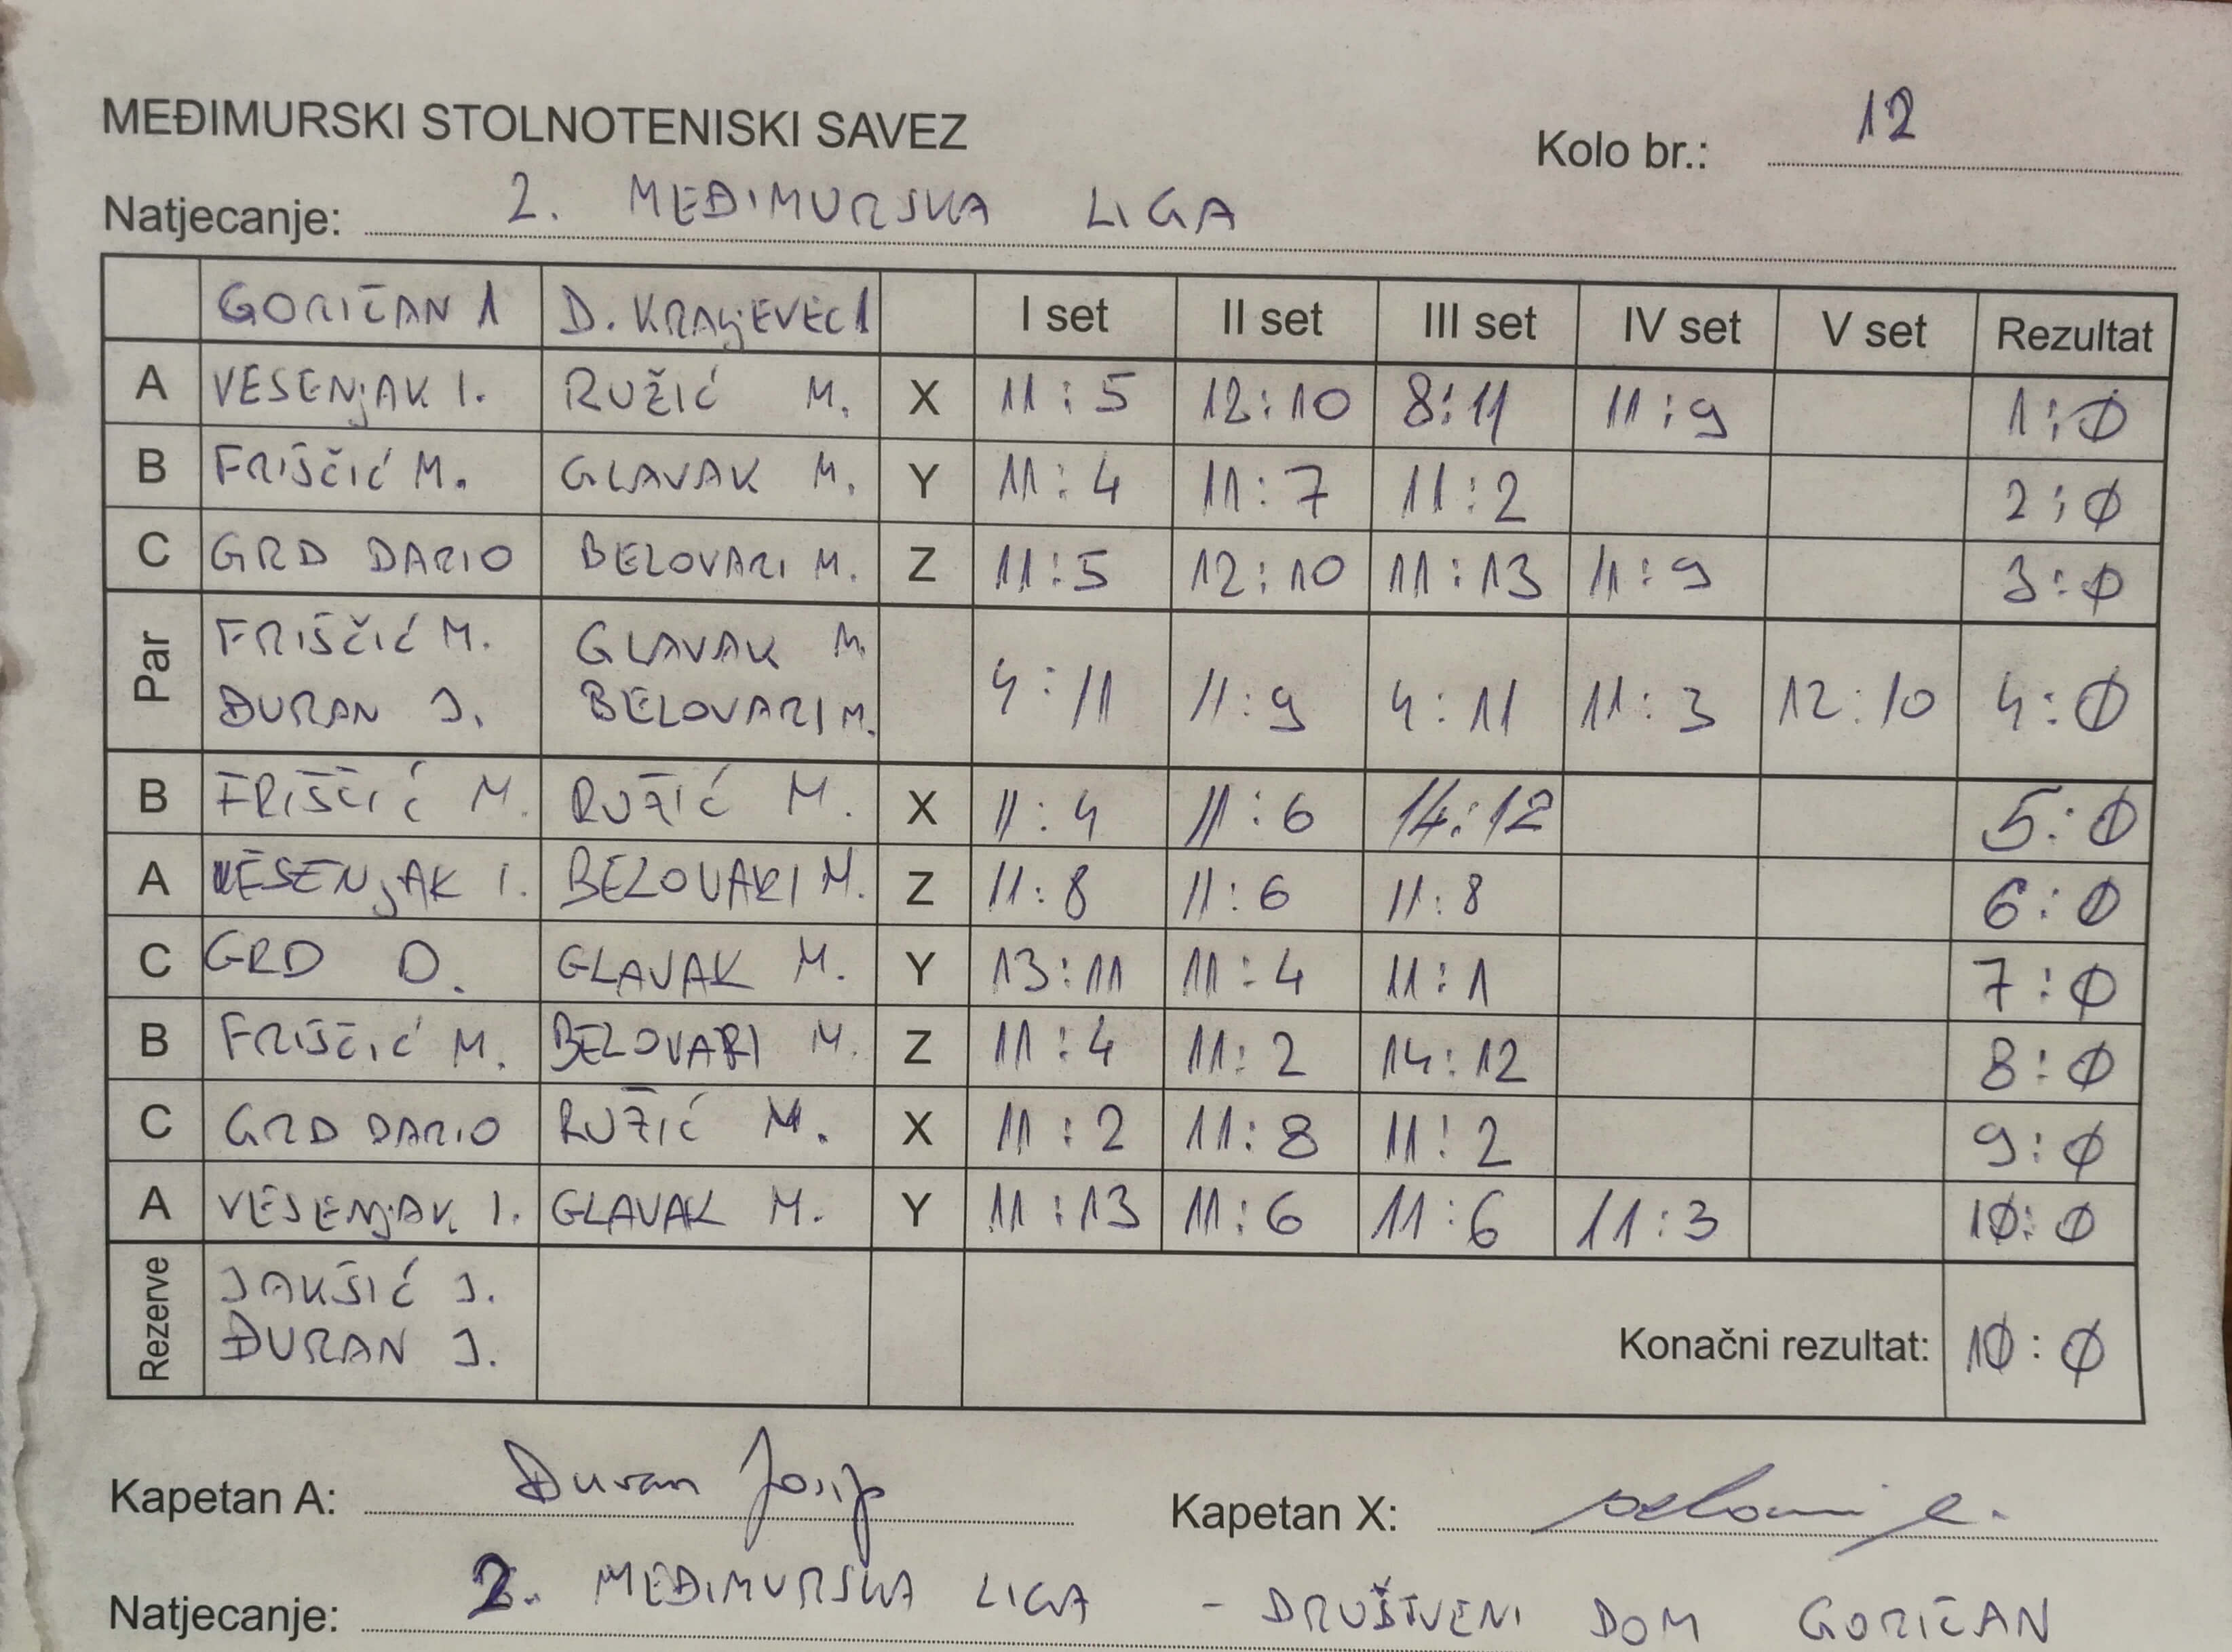 MEĐIMURSKI STOLNOTENISKI SAVEZ
Kolo br.: 12
Natjecanje: 2. MEĐIMURSKA LIGA
GORIČAN 1 D. KRALJEVEC 1 I set II set III set IV set V set Rezultat
A VESENJAK I. RUŽIĆ M. X 11:5 12:10 8:11 11:9 1:0
B FRIŠČIĆ M. GLAVAK M. Y 11:4 11:7 11:2 2:0
C GRD DARIO BELOVARI M. Z 11:5 12:10 11:13 11:9 3:0
Par FRIŠČIĆ M. GLAVAK M.
ĐURAN J. BELOVARI M. 4:11 11:9 4:11 11:3 12:10 4:0
B FRIŠČIĆ M. RUŽIĆ M. X 11:4 11:6 14:12 5:0
A VESENJAK I. BELOVARI M. Z 11:8 11:6 11:8 6:0
C GRD D. GLAVAK M. Y 13:11 11:4 11:1 7:0
B FRIŠČIĆ M. BELOVARI M. Z 11:4 11:2 14:12 8:0
C GRD DARIO RUŽIĆ M. X 11:2 11:8 11:2 9:0
A VESENJAK I. GLAVAK M. Y 11:13 11:6 11:6 11:3 10:0
Rezerve JAKŠIĆ J.
ĐURAN J. Konačni rezultat: 10:0
Kapetan A: Đuran Josip Kapetan X:
Natjecanje: 2. MEĐIMURSKA LIGA - DRUŠTVENI DOM GORIČAN